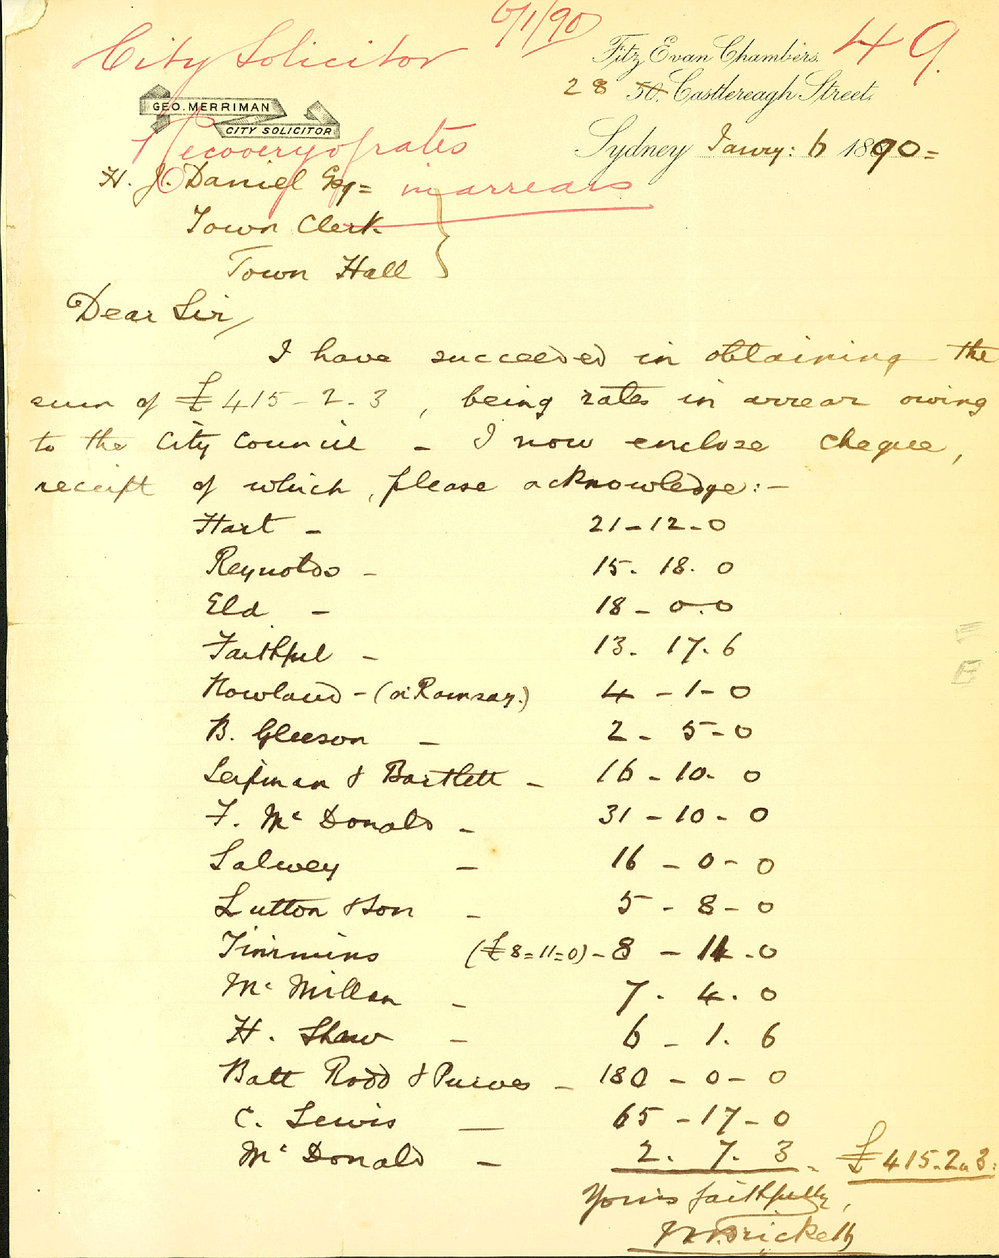 6/1/90
City Solicitor
49.
Fitz Evan Chambers.
28 50. Castlereagh Street.
GEO. MERRIMAN
CITY SOLICITOR
Recovery of rates
in arrears
Sydney Jany: 6 1890=
H. J. Daniel Esq=
Town Clerk
Town Hall
Dear Sir,
I have succeeded in obtaining the
sum of £415-2-3, being rates in arrear owing
to the City Council - I now enclose cheque,
receipt of which, please acknowledge:-
Hart - 21-12-0
Reynolds - 15. 18. 0
Eld - 18-0-0
Faithful - 13. 17. 6
Nowland - (or Ramsay.) 4-1-0
B. Gleeson - 2-5-0
& Bartlett - 16-10-0
F. McDonald - 31-10-0
Salwey - 16-0-0
Lutton & Son - 5-8-0
Timmins (£8=11=0) - 8-11-0
McMillan - 7. 4. 0
H. Shaw - 6-1. 6
Batt Rodd & Purves - 180-0-0
C. Lewis - 65-17-0
McDonald - 2. 7. 3. £415.2.3.
Yours faithfully,